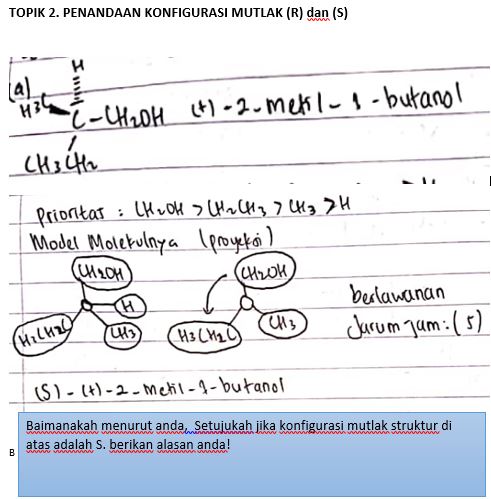 TOPIK 2. PENANDAAN KONFIGURASI MUTLAK (R) dan (S)
H
(a)
H3C
C-CH2OH (+)-2-metil-1-butanol
CH3CH2
Prioritas : CH2OH > CH2CH3 > CH3 > H
Model Molekulnya (proyeksi)
CH2OH CH2OH
H
berlawanan
H3CH2C CH3 H3CH2C CH3 Jarum-jam: (S)
(S)-(+)-2-metil-1-butanol
Baimanakah menurut anda, Setujukah jika konfigurasi mutlak struktur di
atas adalah S. berikan alasan anda!
B